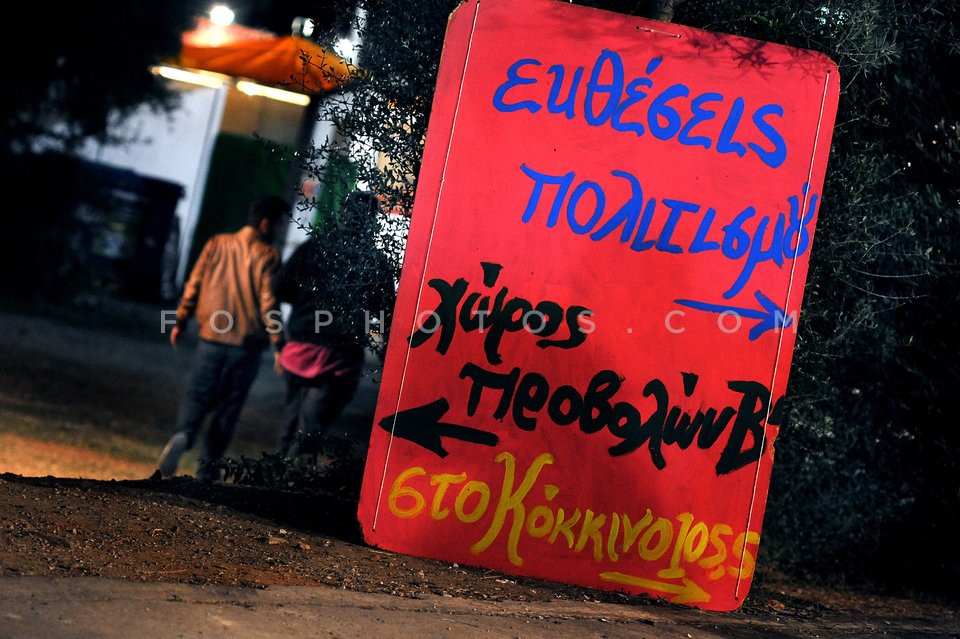 εκθέσεις
πολιτισμού
χώρος
προβολών Β'
στο Κόκκινο 105,5
FOSPHOTOS.COM